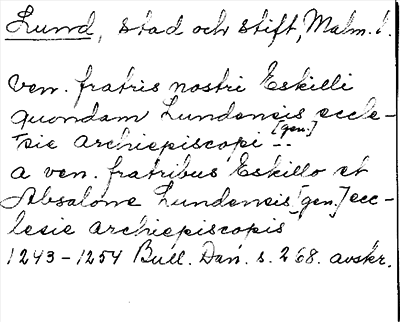 Lund, stad och stift, Malm. l.
ven. fratris nostri Eskilli
quondam Lundensis eccle-
sie archiepiscopi [gen.] ..
a ven. fratribus Eskillo et
Absalone Lundensis [gen.] ecc-
lesie archiepiscopis
1243-1254 Bull. Dan. s. 268. avskr.